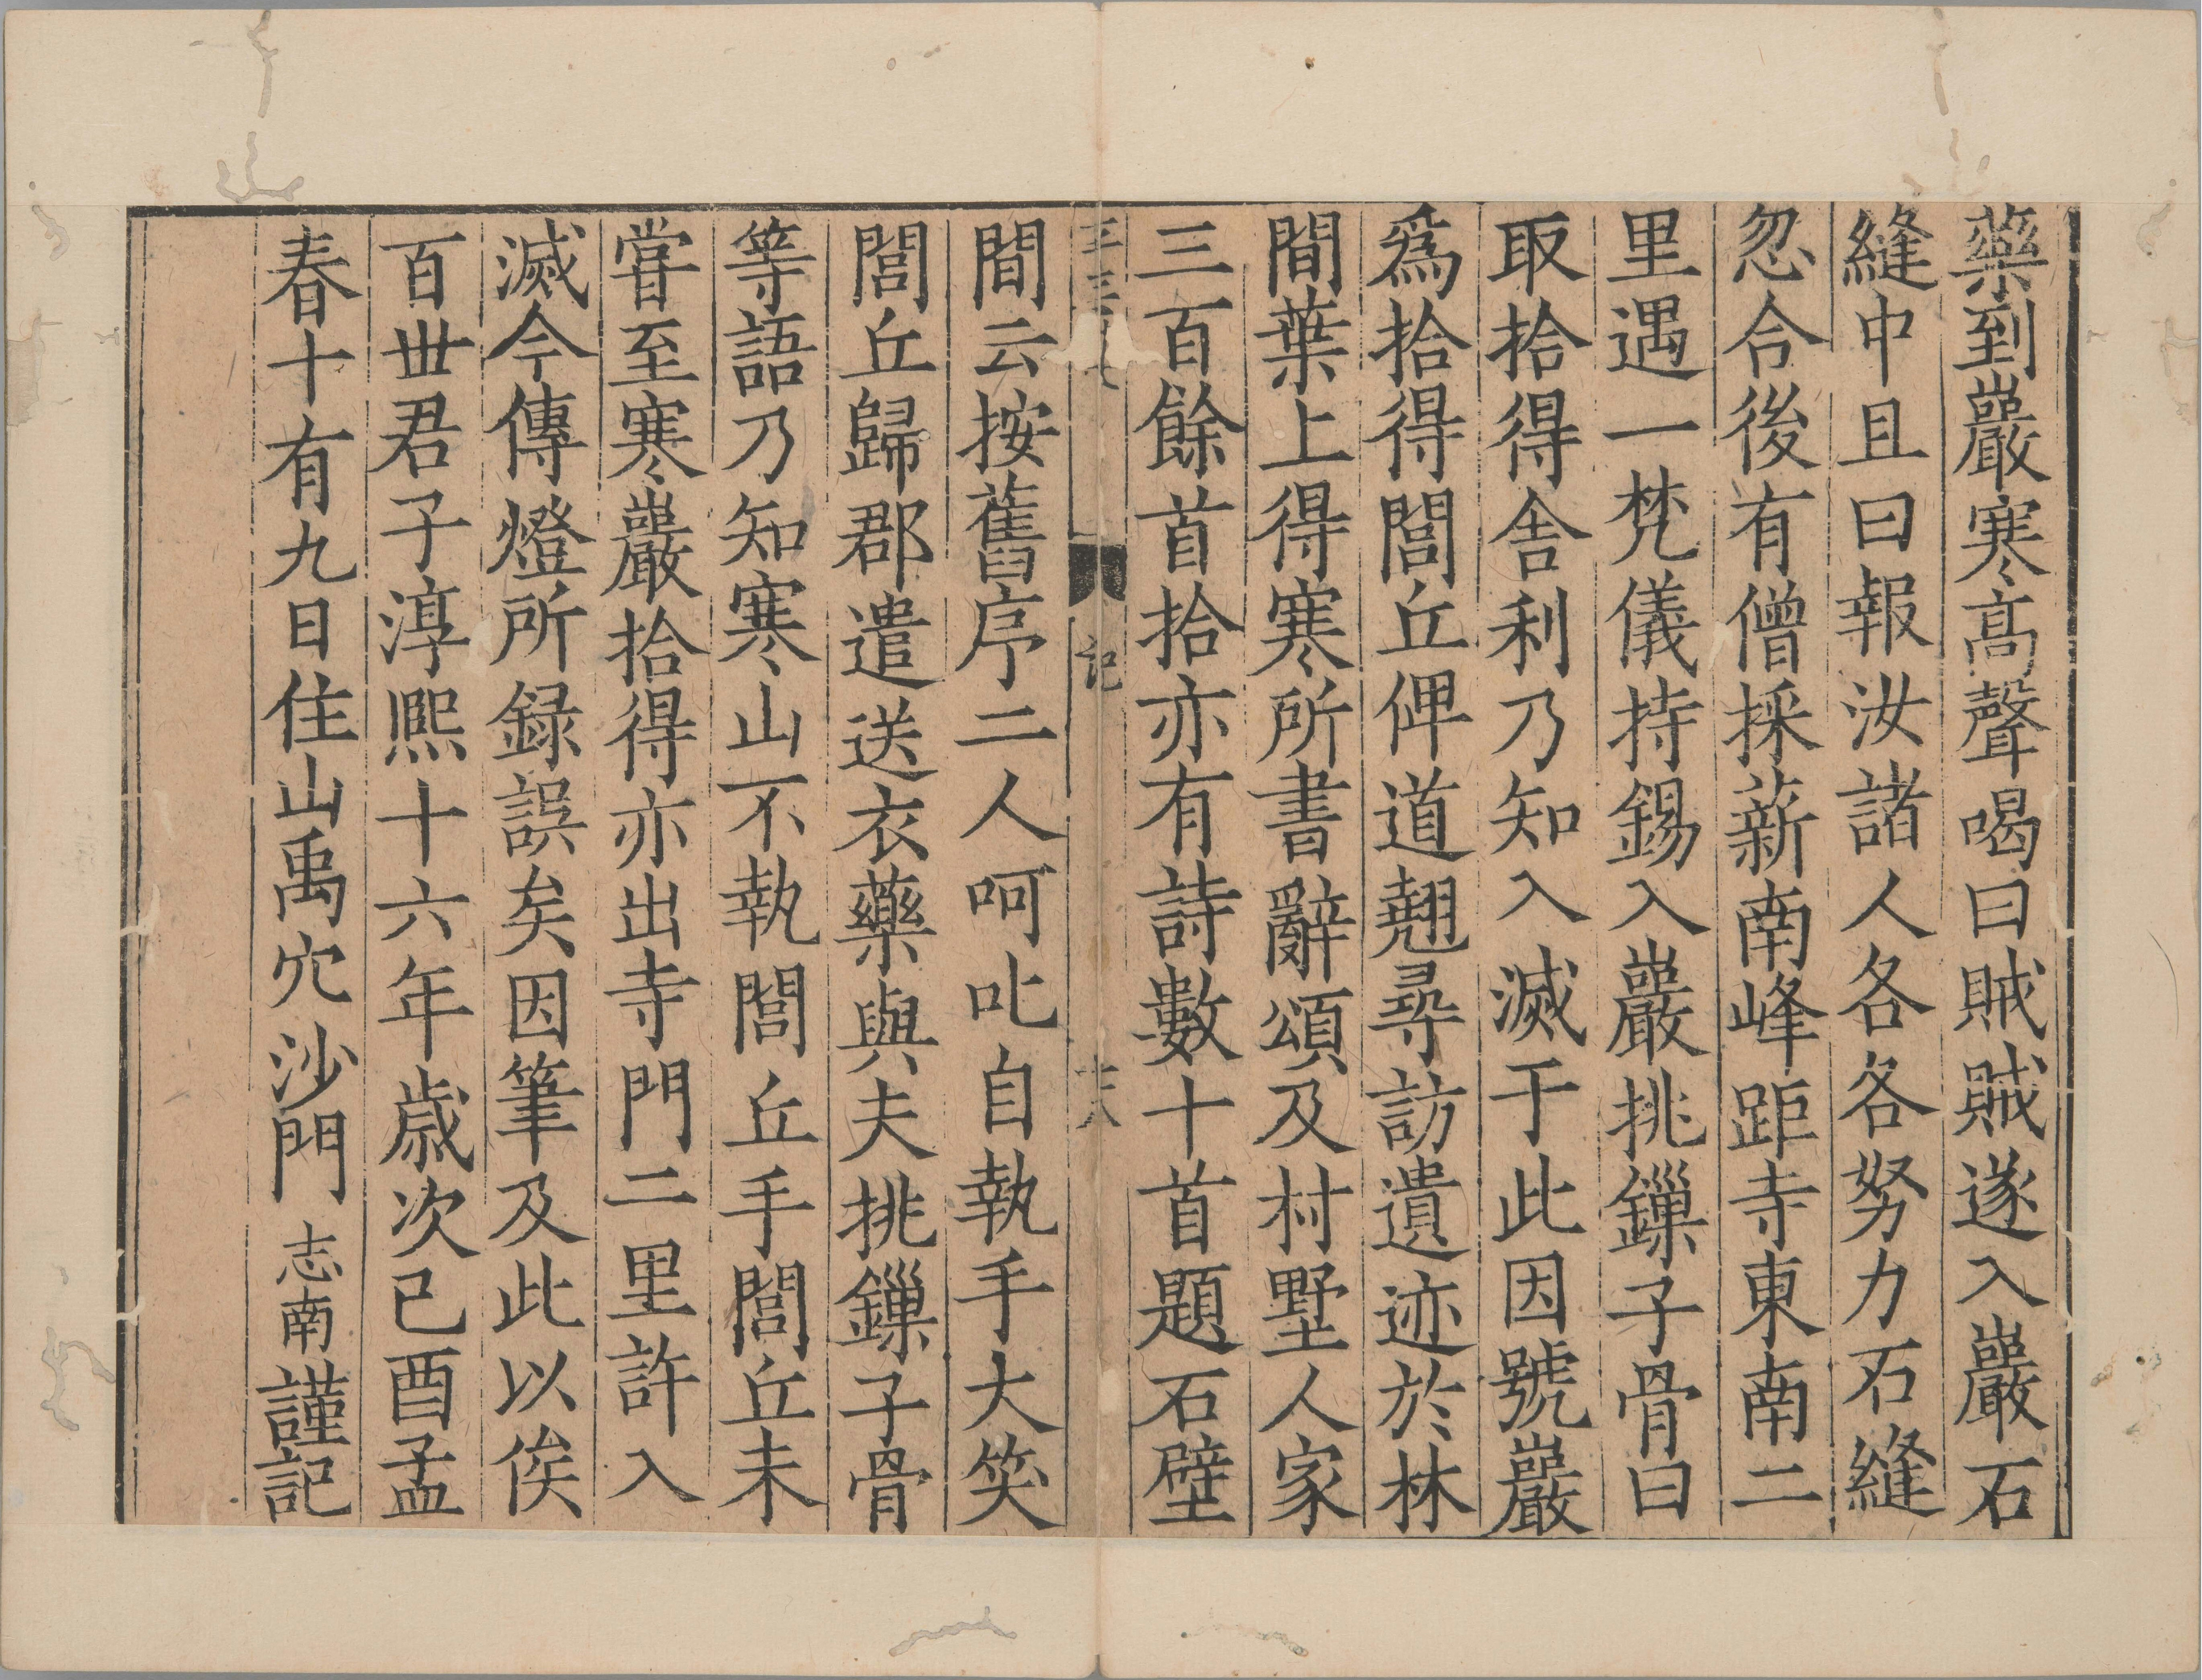 藥到巖寒高聲喝曰賊賊遂入巖石
縫中且曰報汝諸人各各努力石縫
忽合後有僧採薪南峰距寺東南二
里遇一梵儀持錫入巖挑鏁子骨曰
取拾得舍利乃知入滅于此因號巖
爲拾得閭丘俾道翹尋訪遺迹於林
間葉上得寒所書辭頌及村墅人家
三百餘首拾亦有詩數十首題石壁
記
間云按舊序二人呵叱自執手大笑
閭丘歸郡遣送衣藥與夫挑鏁子骨
等語乃知寒山不執閭丘手閭丘未
甞至寒巖拾得亦出寺門二里許入
滅今傳燈所録誤矣因筆及此以俟
百世君子淳熈十六年歳次己酉孟
春十有九日住山禹穴沙門志南謹記